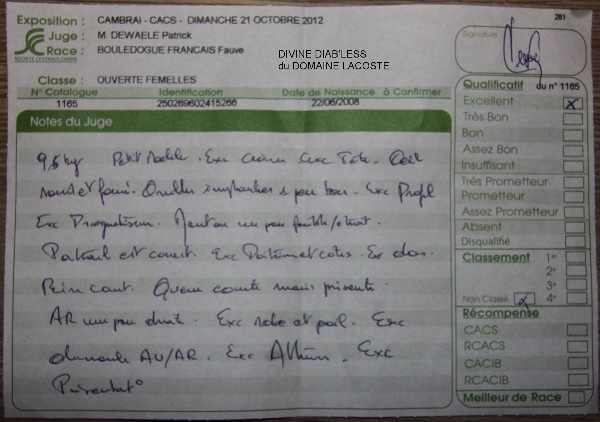 281
Exposition : CAMBRAI - CACS - DIMANCHE 21 OCTOBRE 2012
Juge : M. DEWAELE Patrick
Race : BOULEDOGUE FRANCAIS Fauve
SOCIETE CENTRALE CANINE
DIVINE DIAB'LESS
du DOMAINE LACOSTE
Signature
Classe : OUVERTE FEMELLES
N° Catalogue Identification Date de Naissance à Confirmer
1165 250269602415266 22/06/2008
Notes du Juge
9,5 kg Petit Modèle. Exc Crâne Exc Tête. Oeil
rond et foncé. Oreilles implantées un peu bas. Exc Profil
Exc Menton un peu faible/étroit.
Poitrail est correct. Exc Poitrine et côtes. Ex dos.
Rein court. Queue courte mais présente.
AR un peu droits. Exc robe et poil. Exc
AV/AR. Exc Allures. Exc
Présentat°
Qualificatif du n° 1165
Excellent X
Très Bon
Bon
Assez Bon
Insuffisant
Très Prometteur
Prometteur
Assez Prometteur
Absent
Disqualifié
Classement 1er
2e
3e
Non Classé X 4e
Récompense
CACS
RCACS
CACIB
RCACIB
Meilleur de Race